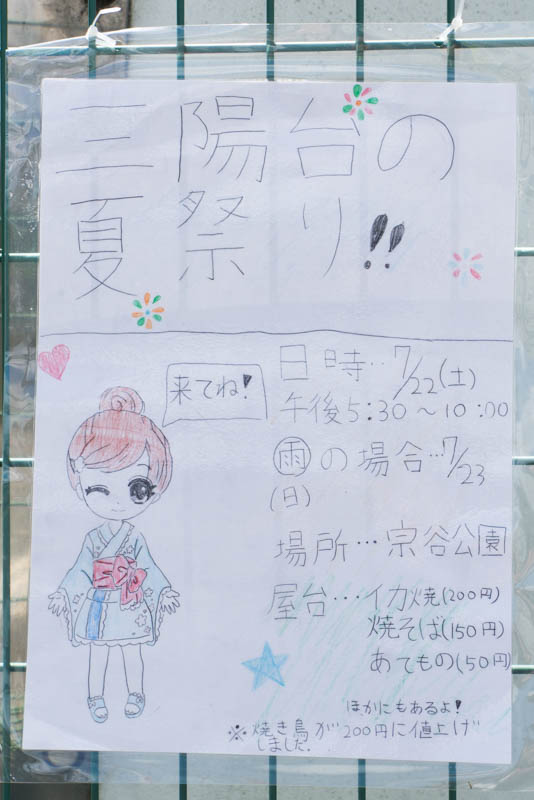 三陽台の
夏祭り!!
来てね!
日時‥7/22(土)
午後5:30〜10:00
雨の場合…7/23
(日)
場所…宗谷公園
屋台…イカ焼(200円)
焼そば(150円)
あてもの(50円)
ほかにもあるよ!
※焼き鳥が200円に値上げ
しました.